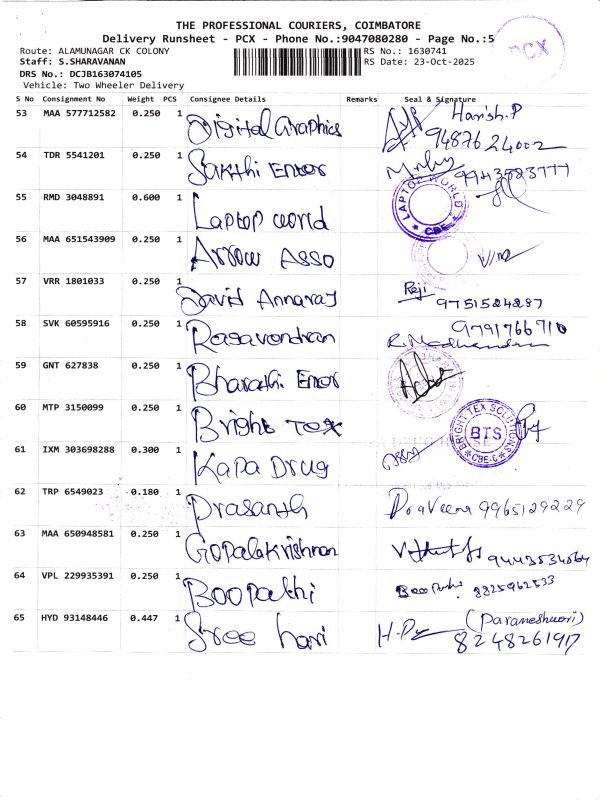 THE PROFESSIONAL COURIERS, COIMBATORE
Delivery Runsheet - PCX - Phone No.:9047080280 - Page No.:5
PCX
Route: ALAMUNAGAR CK COLONY RS No.: 1630741
Staff: S.SHARAVANAN RS Date: 23-Oct-2025
DRS No.: DCJB163074105
Vehicle: Two Wheeler Delivery
S No Consignment No Weight PCS Consignee Details Remarks Seal & Signature
53 MAA 577712582 0.250 1 Digital Graphics Harish.P
9487624002
54 TDR 5541201 0.250 1 Sakthi Enter
55 RMD 3048891 0.600 1 Laptop world LAPTOP WORLD CBE
56 MAA 651543909 0.250 1 Arrow Asso
57 VRR 1801033 0.250 1 David Annaraj Reji
9751524297
58 SVK 60595916 0.250 1 Ragavendran 9791766710
59 GNT 627838 0.250 1 Bharathi Enter
60 MTP 3150099 0.250 1 Bright Tex BRIGHT TEX SOLUTIONS BTS CBE-6
61 IXM 303698288 0.300 1 Kapa Drug
62 TRP 6549023 0.180 1 Prasanth Praveena 9965129229
63 MAA 650948581 0.250 1 Gopalakrishnan
64 VPL 229935391 0.250 1 Boopathi Boopathi 8825962533
65 HYD 93148446 0.447 1 Sree hari (Parameshwari)
8248261917